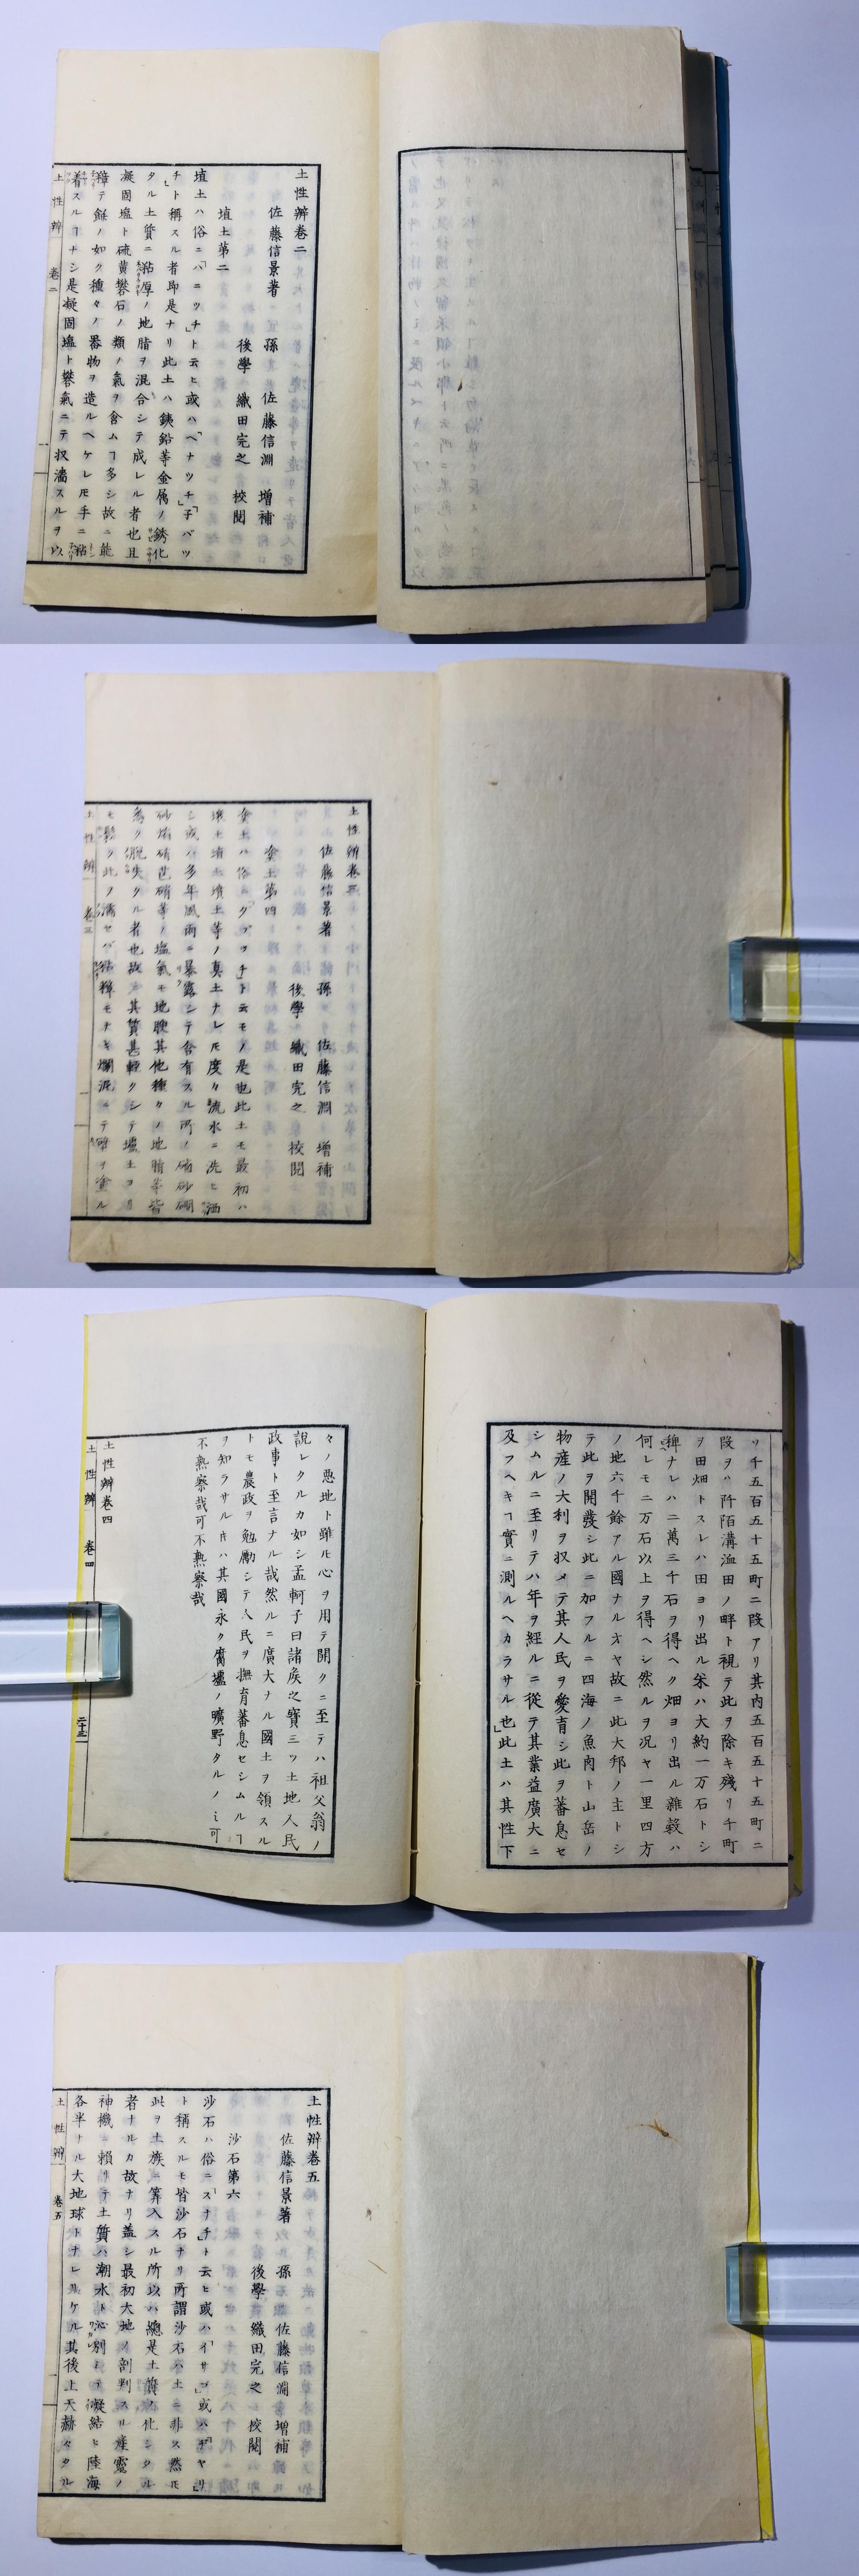 土性辨卷二
佐藤信景著　孫　佐藤信淵　增補
後學　織田完之　校閲
埴土第二
埴土ハ俗ニ「ハニツチ」ト云ヒ或ハ「ヘナツチ」「子バツ
チ」ト稱スル者即是ナリ此土ハ銕鉛等金属ノ銹化
タル土質ニ粘厚ノ地脂ヲ混合シテ成レル者也且
凝固塩ト硫黄礬石ノ類ノ氣ヲ含ムヿ多シ故ニ能
粘テ餅ノ如ク種々ノ器物ヲ造ルヘケレ𪜈手ニ粘
着スルヿナシ是凝固塩ト礬氣ニテ収濇スルヲ以
土性辨　卷二
土性辨卷三
佐藤信景著　孫　佐藤信淵　增補
後學　織田完之　校閲
塗土第四
塗土ハ俗ニ「クブツチ」ト云モノ是也此土モ最初ハ
壤土埴土墳土等ノ真土ナレ𪜈度々流水ニ洗ヒ洒
シ或ハ多年風雨ニ暴露シテ含有スル所ノ硇砂硼
砂焔硝芒硝等ノ塩氣モ地膄其他種々ノ地脂等皆
爲ク脱失タル者也故ニ其質甚輕クシテ壚土ヨリ
モ鬆ク此ノ濡セバ粘糴モナキ爛泥ニテ壁ヲ塗ル
土性辨　卷三
リ千五百五十五町二段アリ其内五百五十五町二
段ヲハ阡陌溝洫田ノ畔ト視テ此ヲ除キ殘リ千町
ヲ田畑トスレハ田ヨリ出ル米ハ大約一万石トシ
稗ナレハ二萬三千石ヲ得ヘク畑ヨリ出ル雜穀ハ
何レモ二万石以上ヲ得ヘシ然ルヲ况ヤ一里四方
ノ地六千餘アル國ナルオヤ故ニ此大邦ノ主トシ
テ此ヲ開發シ此ニ加フルニ四海ノ魚肉ト山岳ノ
物産ノ大利ヲ収メテ其人民ヲ愛育シ此ヲ蕃息セ
シムルニ至リテハ年ヲ經ルニ從テ其業益廣大ニ
及フヘキヿ實ニ測ルヘカラサル也」此土ハ其性下
々ノ悪地ト雖𪜈心ヲ用テ開クニ至テハ祖父翁ノ
說レタルカ如シ孟軻子曰諸矦之寶三ツ土地人民
政事ト至言ナル哉然ルニ廣大ナル國土ヲ領スル
トモ農政ヲ勉勵シテ人民ヲ撫育蕃息セシムルヿ
ヲ知ラサル𪜈ハ其國永ク腐壚ノ曠野タルノミ可
不熟察哉可不熟察哉
土性辨卷四
土性辨　卷四　二十三
土性辨卷五
佐藤信景著　孫　佐藤信淵　增補
後學　織田完之　校閲
沙石第六
沙石ハ俗ニ「スナチ」ト云ヒ或ハ「イサゴ」或ハ「ヂヤリ」
ト稱スルモ皆沙石ナリ所謂沙石ハ土ニ非ス然𪜈
此ヲ土族ニ算入スル所以ハ總是土質ノ化シタル
者ナルカ故ナリ盖シ最初大地ノ剖判スル産霊ノ
神機ニ賴リテ土質ハ潮水ト沁別シテ凝結ヒ陸海
各半ナル大地球トナレルケル其後上天赫々タル
土性辨　卷五